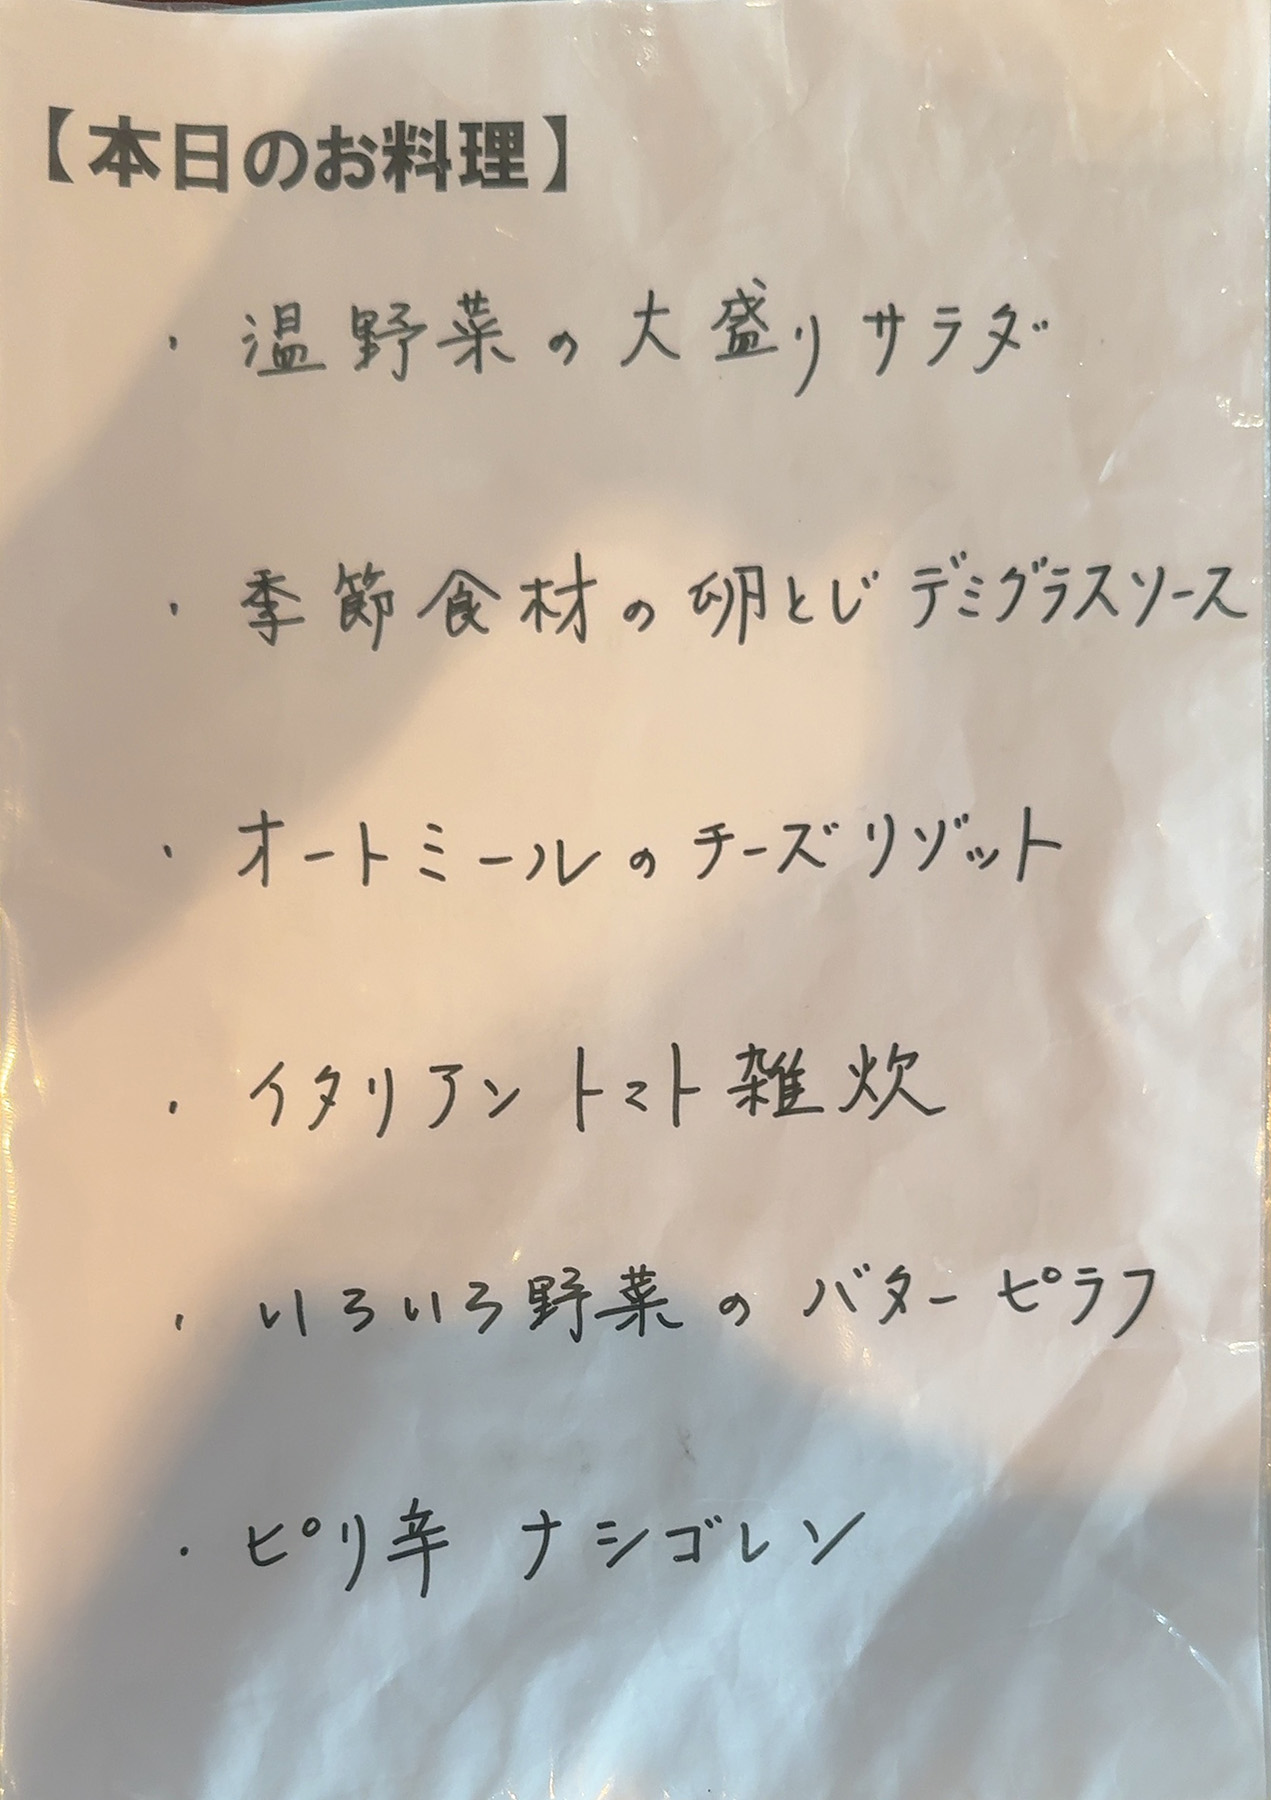 【本日のお料理】
・温野菜の大盛りサラダ
・季節食材の卵とじ デミグラスソース
・オートミールのチーズリゾット
・イタリアン トマト雑炊
・いろいろ野菜の バターピラフ
・ピリ辛 ナシゴレン